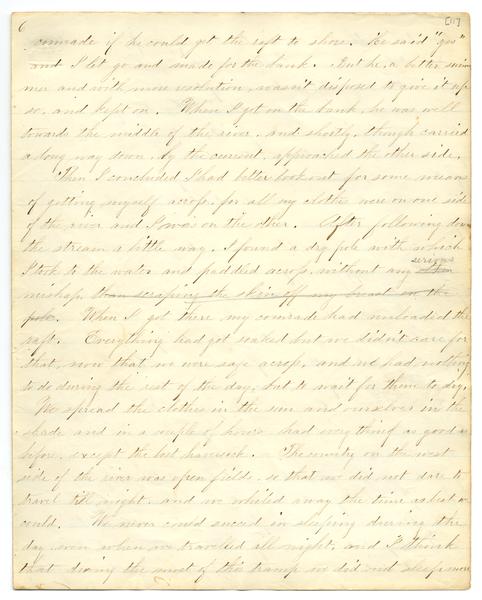 6
[11]
comrade if he could get the raft to shore. He said "yes"
and I let go and made for the bank. But he, a better swim
mer and with more resolution, wasn't disposed to give it up
so, and kept on. When I got on the bank, he was well
towards the middle of the river, and shortly, though carried
a long way down by the current, approached the other side.
Then I concluded I had better look out for some means
of getting myself across, for all my clothes were on one side
of the river and I was on the other. After following down
the stream a little way, I found a dry pole with which
I took to the water and paddled across without any
serious
mishap than scraping the skin off my breast on the
pole. When I got there my comrade had unloaded the
raft. Everything had got soaked but we didn't care for
that, now that we were safe across, and we had nothing
to do during the rest of the day, but to wait for them to dry.
We spread the clothes in the sun and ourselves in the
shade and in a couple of hours had everything as good as
before, except the lost haversack. The country on the west
side of the river was open fields, so that we did not dare to
travel till night, and we whiled away the time as best we
could. We never could succeed in sleeping during the
day even when we travelled all night, and I think
that during the most of this tramp we did not sleep more